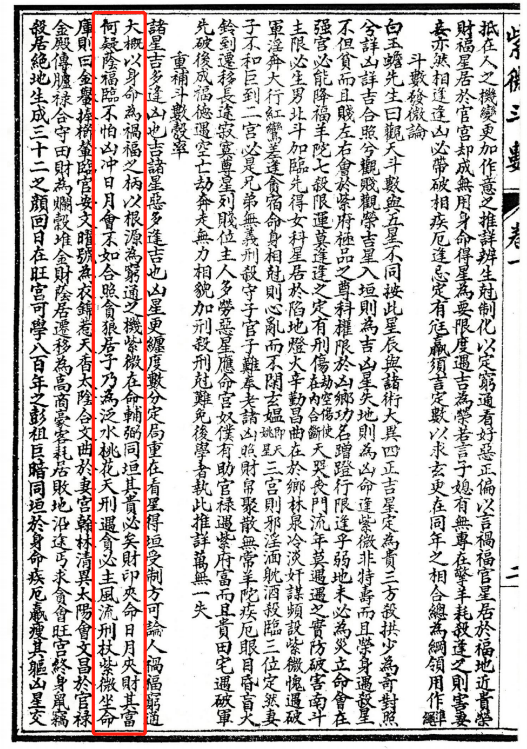 紫微斗數 卷一 二
抵在人之機變更加作意之推詳辨生尅制化以定窮通看好惡正偏以言禍福官星居於福地近貴榮
財福星居於官宮却成無用身命得星為要限度遇吉為榮若言子媳有無專在擎羊耗殺逢之則害妻
妾亦然相逢相凶必帶破相疾厄逢忌定有尪羸須言定數以求玄更在同年之相合總為綱領用作準繩
斗數發微論
白玉蟾先生曰觀天斗數與五星不同按此星辰與諸術大異四正吉星定為貴三方殺拱少為奇對照
兮詳凶詳吉合照兮觀賤觀榮吉星入垣則為吉凶星失地則為凶命逢紫微非特壽而且榮身遇殺星
不但貧而且賤左右會於紫府極品之尊科權限於凶鄉功名蹭蹬行限逢乎弱地未必為災立命會在
强宮必能降福羊陀七殺限運莫逢逢之定有刑傷劫空傷使在內合斷天哭喪門流年莫遇遇之實防破害南斗
主限必生男北斗加臨先得女科星居於陷地燈火辛勤昌曲在於鄉林泉冷淡奸謀頻設紫微愧遇破
軍淫奔大行紅鸞差逢貪宿命身相尅則心亂而不閑玄媼即天姚星三宮則邪淫而耽酒殺臨三位定然妻
子不和巨到二宮必是兄弟無義刑殺守子宮子難奉老諸凶照財帛聚散無常羊陀疾厄眼目昏盲火
鈴到遷移長途寂寞尊星列賤位主人多勞惡星應命宮奴僕有助官祿遇紫府富而且貴田宅遇破軍
先破後成福德遇空亡劫奔走無力相貌加刑殺刑尅難免後學者執此推詳萬無一失
重補斗數彀率
諸星吉多逢凶也吉諸星惡多逢吉也凶星更纏度數分定局重在看星得垣受制方可論人禍福窮通
大概以身命為禍福之柄以根源為窮通之機紫微在命輔弼同垣其貴必矣財印夾命日月夾財其富
何疑蔭福臨不怕凶冲日月會不如合照貪狼居子乃為泛水桃花天刑遇貪必主風流刑杖紫微坐命
庫則曰金轝捧櫛輦臨官安文曜號為衣錦惹天香太陰合文曲於妻宮翰林清異太陽會文昌於官祿
金殿傳臚祿合守田財為爛穀堆金財蔭居遷移為高商豪客耗居敗地沿途丐求貪會旺宮終身鼠竊
殺居絕地生成三十二之顏回日在旺宮可學八百年之彭祖巨暗同垣於身命疾厄羸瘦其軀凶星交